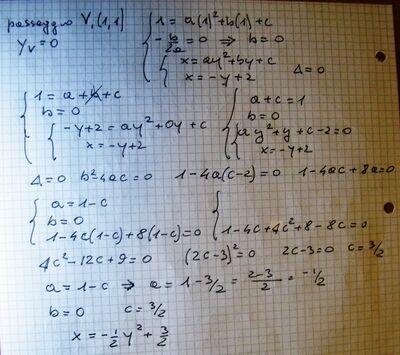 passaggio V₁(1,1) { 1 = a(1)² + b(1) + c
y_V = 0 { -b/2a = 0 ⇒ b = 0
{ x = ay² + by + c
x = -y + 2 Δ = 0
{ 1 = a + b + c
b = 0
{ -y + 2 = ay² + 0y + c
x = -y + 2
{ a + c = 1
b = 0
ay² + y + c - 2 = 0
x = -y + 2
Δ = 0 b² - 4ac = 0 1 - 4a(c - 2) = 0 1 - 4ac + 8a = 0
{ a = 1 - c
b = 0
1 - 4c(1 - c) + 8(1 - c) = 0 { 1 - 4c + 4c² + 8 - 8c = 0
4c² - 12c + 9 = 0 (2c - 3)² = 0 2c - 3 = 0 c = 3/2
a = 1 - c ⇒ a = 1 - 3/2 = (2 - 3)/2 = -1/2
b = 0 c = 3/2
x = -1/2 y² + 3/2